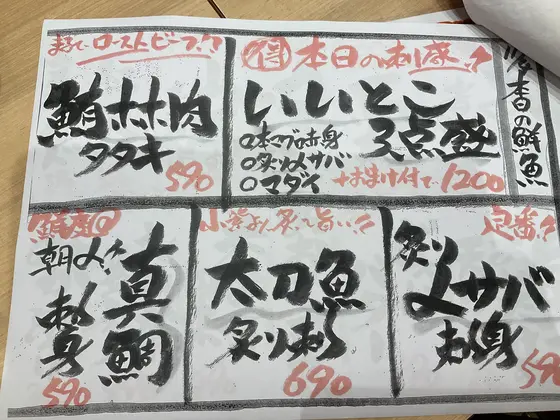 まるで ローストビーフ!?
鮪ホホ肉
タタキ
590
得 本日の刺盛!!
いいとこ
3点盛
○本マグロ赤身
○炙り〆サバ
○マダイ
+おまけ付で 1200
本日の鮮魚
鮮度◎
朝〆!!
真鯛
刺身
590
炙って旨い!!
太刀魚
炙り刺し
690
定番!!
炙り
〆サバ
刺身
590